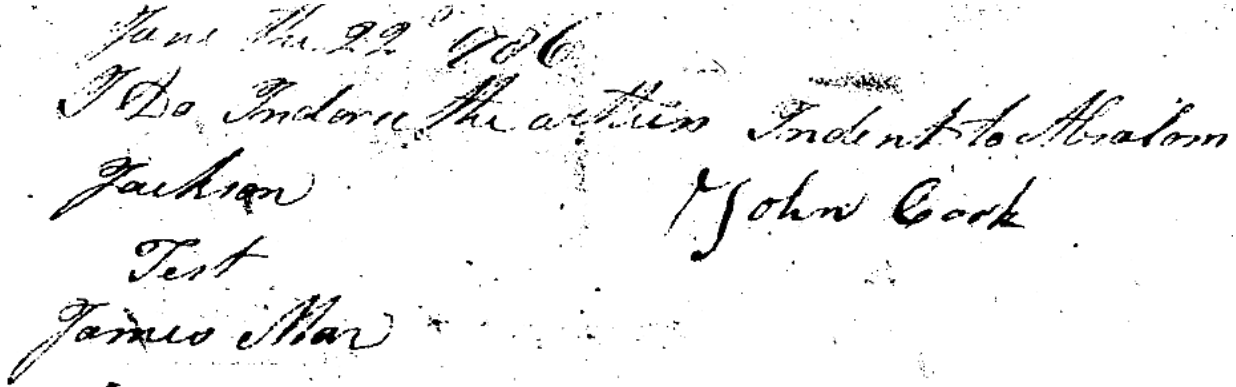 June the 22d 1786
I Do Indorse the within Indent to Absalom
Jackson
John Cook
Test
James Mar